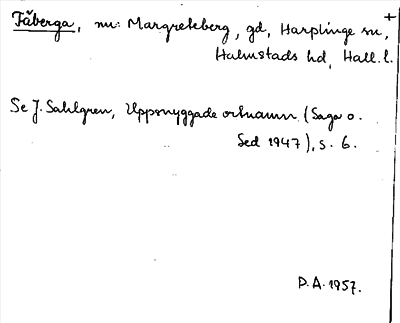 Tåberga, nu: Margreteberg, gd, Harplinge sn, +
Halmstads hd, Hall. l.
Se J. Sahlgren, Uppsnyggade ortnamn (Saga o.
Sed 1947), s. 6.
P.A. 1957.